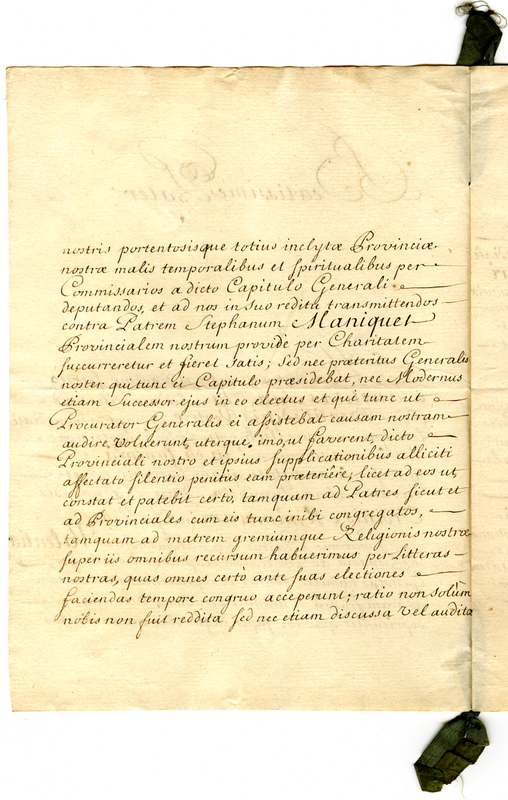 nostris portentosisque totius inclytæ Provinciæ
nostræ malis temporalibus et spiritualibus per
Commissarios a dicto Capitulo Generali
deputandos, et ad nos in suo reditu transmittendos
contra Patrem Stephanum Maniquet
Provincialem nostrum providè per Charitatem
succurreretur et fieret satis; sed nec præteritus Generalis
noster qui tunc ei Capitulo præsidebat, nec Modernus
etiam Successor ejus in eo electus et qui tunc ut
Procurator Generalis ei assistebat causam nostram
audire voluerunt, uterque, imo, ut faverent, dicto
Provinciali nostro et ipsius supplicationibus alliciti
affectato silentio penitus eam præteriêre, licet ad eos ut
constat et patebit certò, tamquam ad Patres sicut et
ad Provinciales cum eis tunc inibi congregatos,
tamquam ad matrem gremiumque Religionis nostræ
super iis omnibus recursum habuerimus per litteras
nostras, quas omnes certò ante suas electiones
faciendas tempore congruo acceperunt; ratio non solùm
nobis non fuit reddita sed nec etiam discussa vel audita